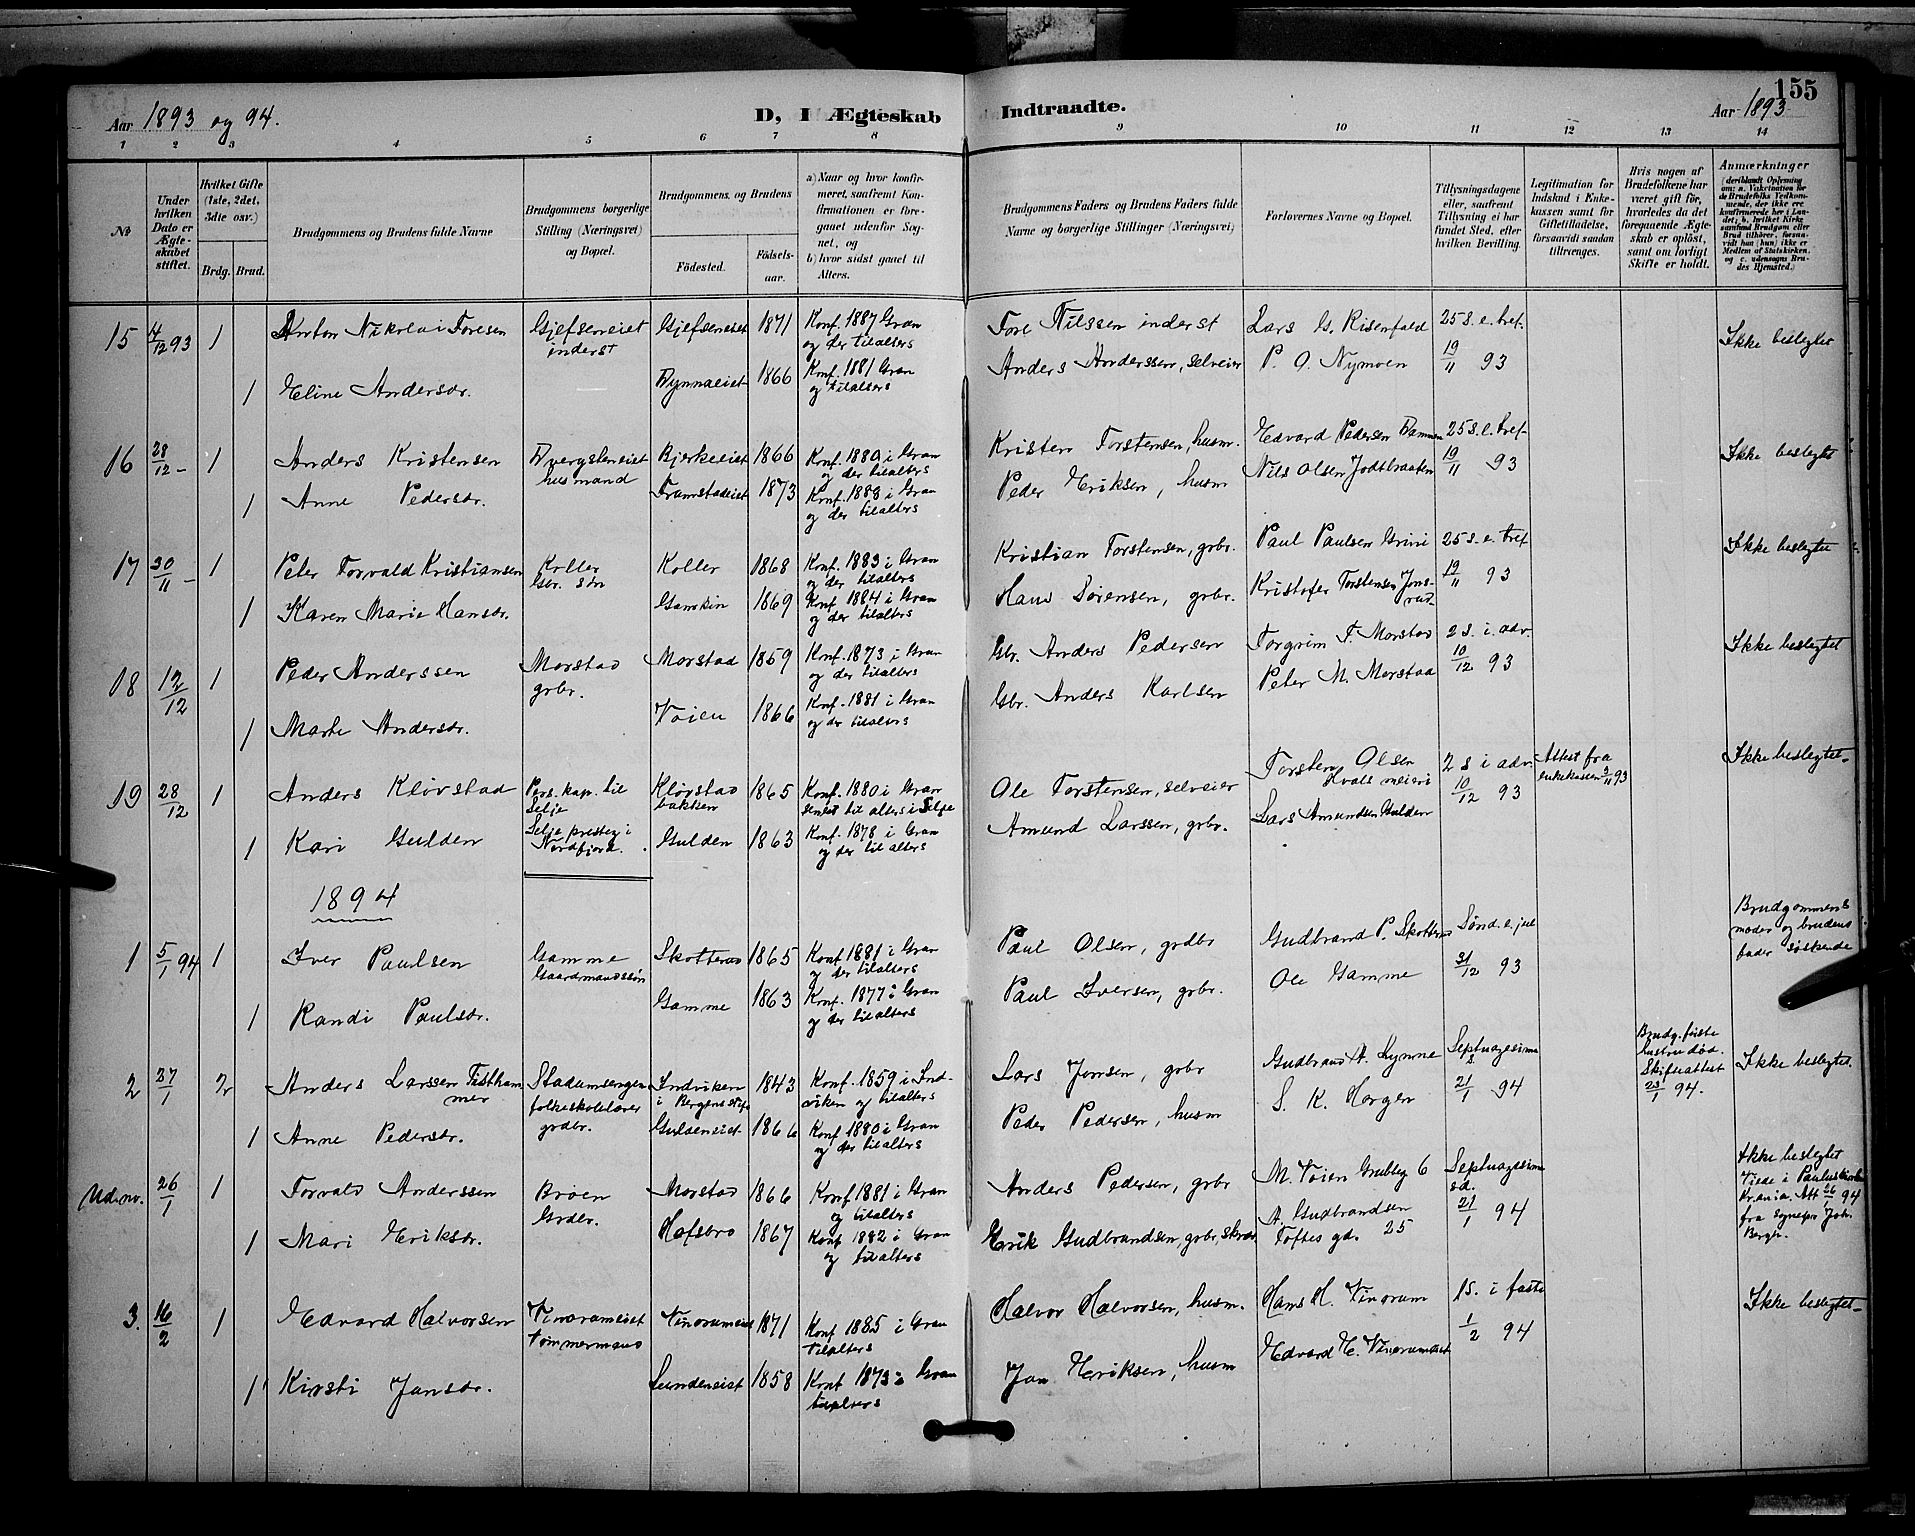 155
Aar 1893 og 94.
D, I Ægteskab Indtraadte.
Aar 1893
1 2 3 4 5 6 7 8 9 10 11 12 13 14
No
Under hvilken Dato er Ægteskabet stiftet.
Hvilket Gifte (1ste, 2det, 3die osv.)
Brdg. Brud.
Brudgommens og Brudens fulde Navne
Brudgommens borgerlige Stilling (Næringsvei) og Bopæl.
Brudgommens og Brudens
Födested.
Födselsaar.
a) Naar og hvor konfirmeret, saafremt Konfirmationen er foregaaet udenfor Sognet, og
b) hvor sidst gaaet til Alters.
Brudgommens Faders og Brudens Faders fulde Navne og borgerlige Stillinger (Næringsvei)
Forlovernes Navne og Bopæl.
Tillysningsdagene eller, saafremt Tillysning ei har fundet Sted, efter hvilken Bevilling.
Legitimation for Indskud i Enkekassen samt for Giftetilladelse, forsaavidt saadan tiltrænges.
Hvis nogen af Brudefolkene har været gift før, hvorledes da det foregaaende Ægteskab er oplöst, samt om lovligt Skifte er holdt.
Anmærkninger
(deriblandt Oplysning om: a. Vakcination for de Brudefolks Vedkommende, der ikke ere konfirmerede her i Landet; b. hvilket Kirkesamfund Brudgom eller Brud tilhörer, forsaavidt han (hun) ikke er Medlem af Statskirken, og c. udensogns Brudes Hjemsted.)
15 4/12 93 1 Anton Nikolai Toresen Gjefseneiet inderst Gjefseneiet 1871 Konf. 1887 Gran og der tilalters Tore Nilssen inderst Lars G. Risenfald 25 s. e. tref. Ikke beslegtet
1 Eline Andersdr. Bynnaeiet 1866 Konf. 1881 Gran og tilalters Anders Anderssen, selveier P. O. Nymoen 19/11 93
16 28/12 - 1 Anders Kristensen husmand Bjerkeeiet 1866 Konf. 1880 i Gran og der tilalters Kristen Torstensen, husm. Edvard Pedersen 25 s. e. tref. Ikke beslegtet
1 Anne Pedersdr. Framstadeiet 1873 Konf. 1888 i Gran og der tilalters Peder Eriksen, husm Nils Olsen Jodtbraaten 19/11 93
17 30/11 - 1 Peter Torvald Kristiansen Koller Gbr. søn Koller 1868 Konf. 1883 i Gran og der tilalters Kristian Torstensen, grbr. Paul Paulsen Grini 25 s. e. tref Ikke beslegtet
1 Karen Marie Hansdr. Gamkin 1869 Konf. 1884 i Gran og der tilalters Hans Sørensen, grbr. Kristofer Torstensen Jonsrud 19/11 93
18 12/12 1 Peder Anderssen Morstad grbr. Morstad 1859 Konf. 1873 i Gran og der tilalters Gbr. Anders Pedersen Torgrim T. Morstad 2 s. i. adv. Ikke beslegtet
1 Marte Andersdr. Vøien 1866 Konf. 1881 i Gran og der tilalters Gbr. Anders Karlsen Peter M. Morstad 10/12 93
19 28/12 1 Anders Kløvstad Pers. kap. til Selje Kløvstadbakken 1865 Konf. 1880 i Gran senest til alters i Selje Ole Torstensen, selveier Torsten Olsen Hvals meieri 2 s i adv Attest fra enkekassen 3/11 93 Ikke beslegtet
1 Kari Gulden Selje presteg i Nordfjord. Gulden 1863 Konf. 1878 i Gran og der til alters Amund Larssen, grbr. Lars Amundsen Gulden 10/12 93
1894
1 5/1 94 1 Iver Paulsen Gamme Gaardmandssøn Skotterud 1865 Konf 1881 i Gran og der tilalters Paul Olsen, grdbr Gudbrand P. Skotterud Sønd. e. jul Brudgommens moder og brudens fader søskende
1 Randi Paulsdr. Gamme 1863 Konf. 1877 i Gran og der tilalters Paul Iversen, grbr. Ole Gamme 31/12 93
2 27/1 2 Anders Larssen Tisthammer Stadumsengen folkeskolelærer grdbr. Indviken i Bergens stift 1843 Konf. 1859 i Indviken og tilalters Lars Jonsen, grbr Gudbrand A. Lynne Septuagesima s. Brudg. første hustru død. Skifteattest 23/1 94. Ikke beslegtet.
1 Anne Pedersdr. Guldeneiet 1866 Konf 1880 i Gran og der tilalters Peder Pedersen, husm S. K. Horgen 21/1 94
Ud.nv. 26/1 1 Torvald Anderssen Brøen Grdbr. Morstad 1866 Konf 1881 i Gran og tilalters Anders Pedersen, grbr M. Vøien Grubbeg 6 Septuagesima sd. Ikke beslegtet Viede i Paulus kirke Kr.ania. Att 26/1 94 fra sognepr Joh. Bergh.
1 Mari Eriksdr. Hofsbro 1867 Konf 1882 i Gran og tilalters Erik Gudbrandsen, grbr, skræd. A. Gudbrandsen Toftes gd. 25 21/1 94
3. 16/2 1 Edvard Halvorsen Vinorumeiet Tømmermand Vinorumeiet 1871 Konf 1885 i Gran tilalters Halvor Halvorsen, husm. Hans H. Vinorum 1 s. i faste Ikke beslegtet
1 Kirsti Jansdr. Lundeneiet 1858 Konf 1873 i Gran tilalters Jan Eriksen, husm Edvard E. Vinorumeiet 1/2 94